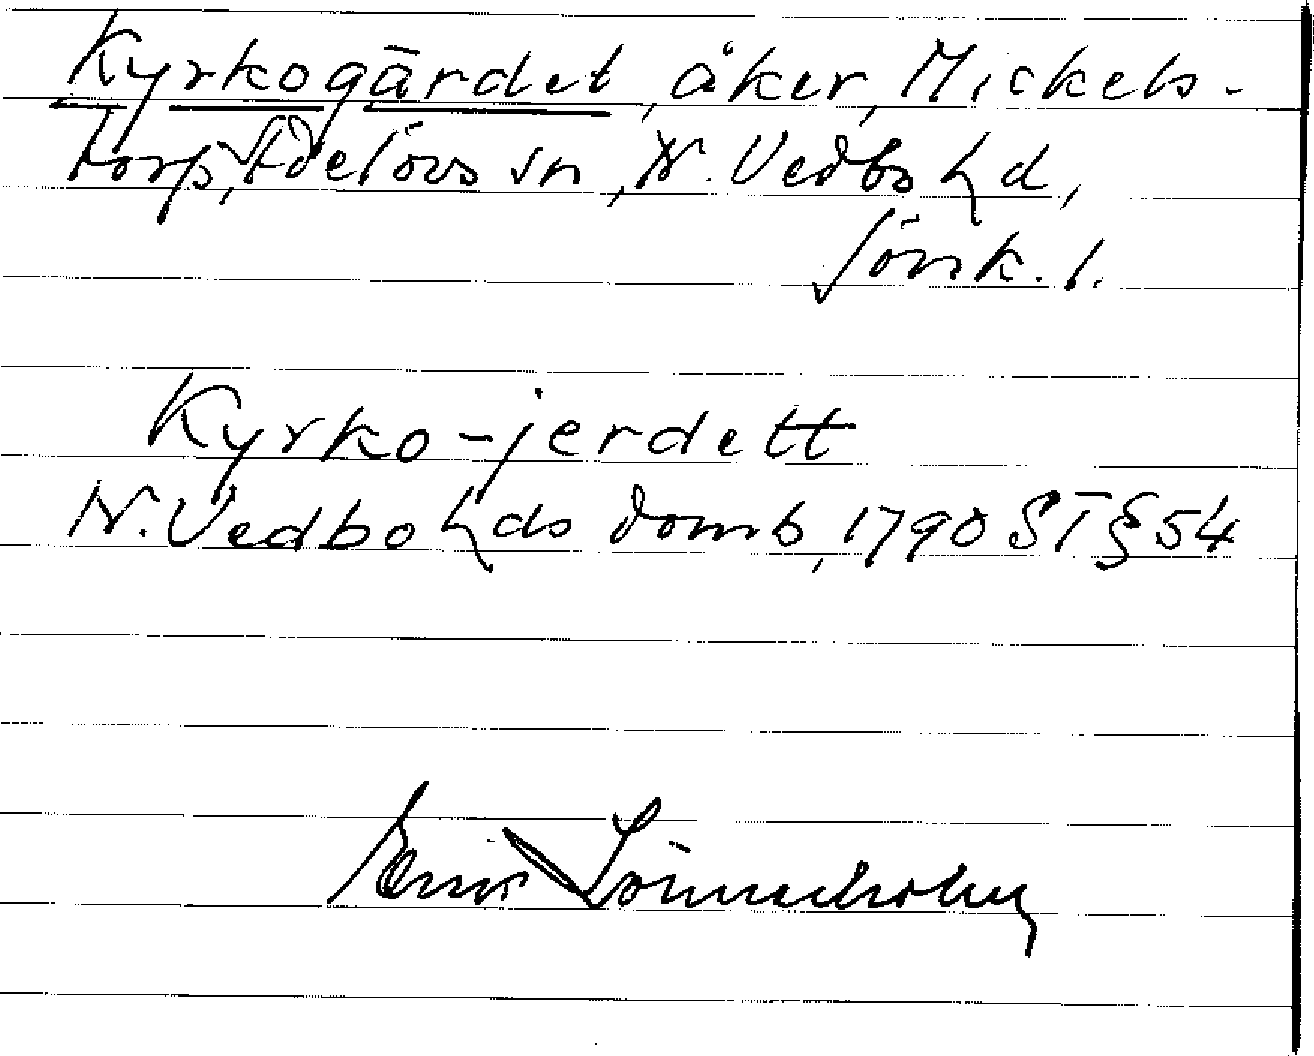 Kyrkogärdet, åker, Mickels-
torp, Edelövs sn, N. Vedbo hd,
Jönk. l.
Kyrko-jerdett
N. Vedbo hds domb, 1790 ST § 54
Erik Lönnerholm